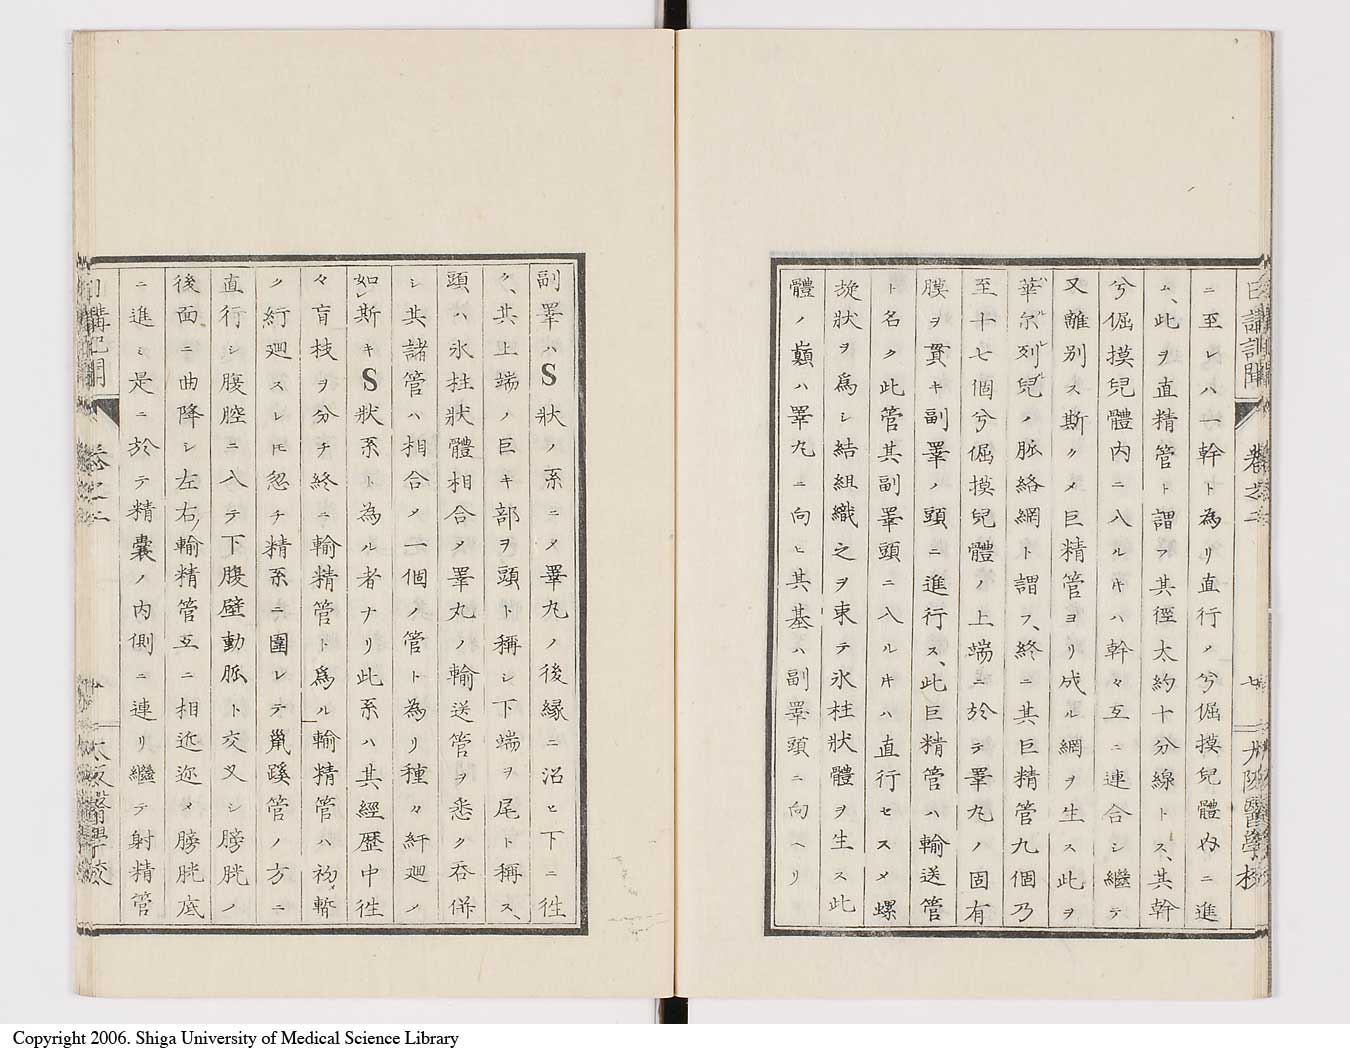 日講記聞
卷之二
七
大阪醫學校
ニ至レハ一幹ト為リ直行ノ兮倔摸兒體內ニ進
ム、此ヲ直精管ト謂フ其徑太約十分線トス、其幹
兮倔摸兒體內ニ入ルキハ幹々互ニ連合シ繼テ
又離別ス斯クメ巨精管ヨリ成ル網ヲ生ス此ヲ
華尓列兒ノ脈絡網ト謂フ、終ニ其巨精管九個乃
至十七個兮倔摸兒體ノ上端ニ於テ睪丸ノ固有
膜ヲ貫キ副睪ノ頭ニ進行ス、此巨精管ハ輸送管
ト名ク此管其副睪頭ニ入ルキハ直行セスメ螺
旋狀ヲ爲シ結組織之ヲ束テ氷柱狀體ヲ生ス此
體ノ巔ハ睪丸ニ向ヒ其基ハ副睪頭ニ向ヘリ
副睪ハS狀ノ系ニメ睪丸ノ後縁ニ沿ヒ下ニ徃
ク、其上端ノ巨キ部ヲ頭ト稱シ下端ヲ尾ト稱ス、
頭ハ氷柱狀體相合メ睪丸ノ輸送管ヲ悉ク呑併
シ其諸管ハ相合メ一個ノ管ト為リ種々紆廻ノ
如斯キS狀系ト為ル者ナリ此系ハ其經歷中徃
々盲枝ヲ分チ終ニ輸精管ト爲ル輸精管ハ初メ暫
ク紆廻スレ𪜈忽チ精系ニ圍レテ鼡蹊管ノ方ニ
直行シ腹腔ニ入テ下腹壁動脈ト交叉シ膀胱ノ
後面ニ曲降シ左右ノ輸精管互ニ相近迩メ膀胱底
ニ進ミ是ニ於テ精囊ノ內側ニ連リ繼テ射精管
日講記聞
卷之二
大阪醫學校
Copyright 2006. Shiga University of Medical Science Library